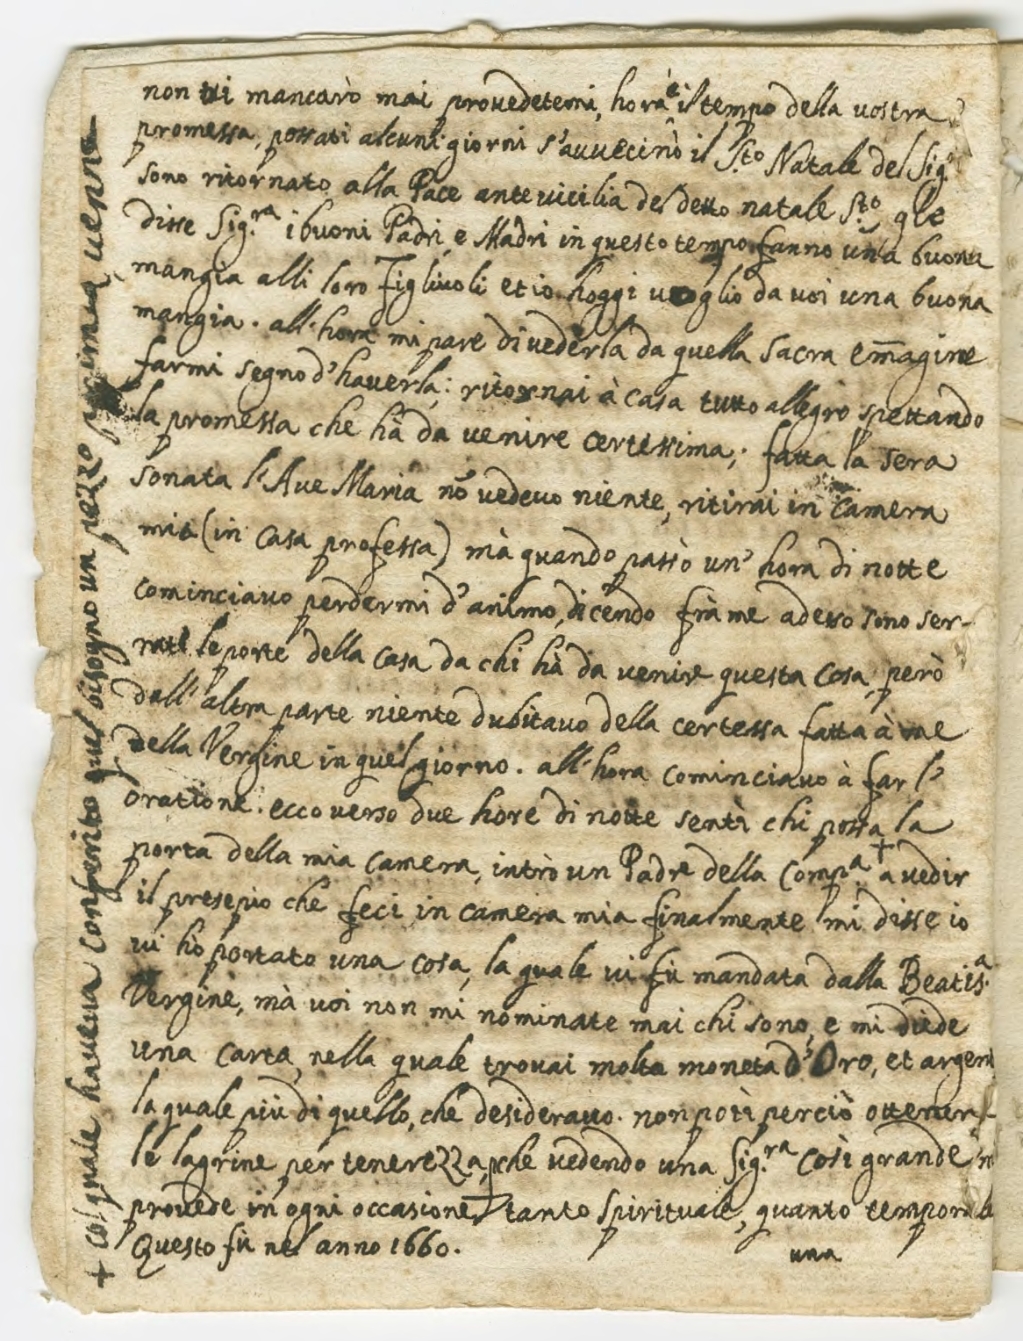 non vi mancarò mai provedetemi, hora è il tempo della vostra
promessa, passati alcuni giorni s'avvecinò il S.to Natale del Sig.r
sono ritornato alla Pace antevicilia del detto natale S.to, e le
disse Sig.ra i buoni Padri, e Madri in questo tempo fanno una buona
mangia alli loro Figlivoli et io hoggi voglio da voi una buona
mangia. all'hora mi pare di vederla da quella sacra em̄agine
farmi segno d'haverla: ritornai à casa tutto allegro spettando
la promessa che hà da venire certessima; fatta la sera
sonata l'Ave Maria nō vedevo niente, ritirai in camera
mia (in Casa professa) mà quando passò un' hora di notte
cominciavo perdermi d'animo, dicendo frà me adesso sono ser-
rate le porte della casa da chi hà da venire questa cosa, però
dall'altra parte niente dubitavo della certessa fatta à me
della Vergine in quel giorno. all'hora cominciavo à far l'
oratione. ecco verso due hore di notte sentì chi possa la
porta della mia camera, intrò un Padre della Comp.a + a vedir
il presepio che feci in camera mia finalmente mi disse io
vi hò portato una cosa, la quale vi fù mandata dalla Beatis.a
Vergine, mà voi non mi nominate mai chi sono, e mi diède
una carta, nella quale trovai molta moneta d'Oro, et argent
la quale più di quello, che desideravo. non potì perciò ottener-
le lagrine per tenerezza, p̱che vedendo una Sig.ra così grande m
provede in ogni occasione, tanto spirituale, quanto temporale
Questo fù nel anno 1660.
una
+ col quale haveva conferito quel bisogno un pezzo prima veppe